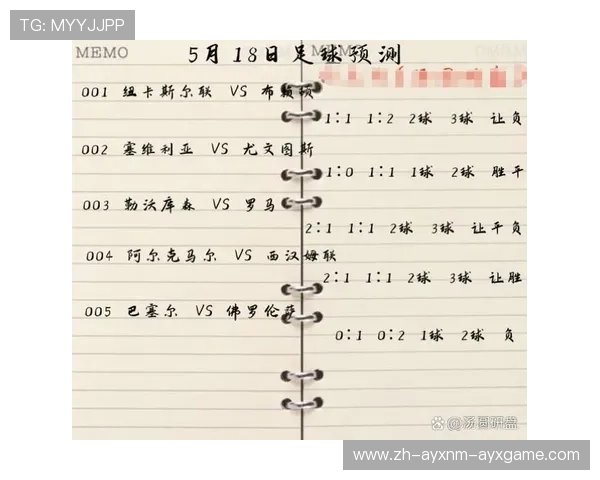 TG: MYYJJPP
MEMO
5月18日足球预测
001 纽卡斯尔联 VS 布赖顿
1:1 1:2 2球 3球 让负
002 塞维利亚 VS 尤文图斯
1:0 1:1 1球 2球 胜平
003 勒沃库森 VS 罗马
2:1 1:1 2球 3球 让平负
004 阿尔克马尔 VS 西汉姆联
2:1 1:1 2球 3球 让胜
005 巴塞尔 VS 佛罗伦萨
0:1 0:2 1球 2球 负
汤圆研盘
www.zh-ayxnm-ayxgame.com